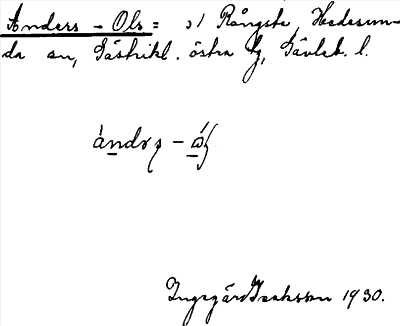 Anders-Ols: i Rångsta, Hedesun-
da sn, Gästrikl. östra tg, Gävleb. l.
Ingegärd Isaksson 1930.